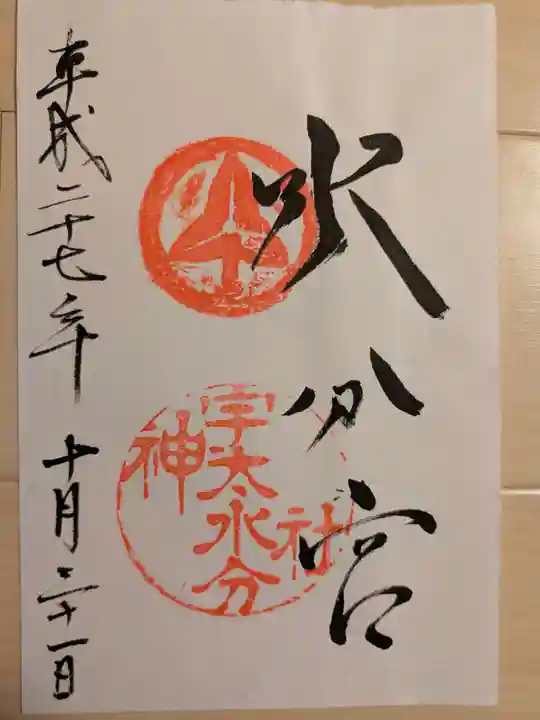 水分宮
宇太水分
神社
平成二十七年十月三十一日